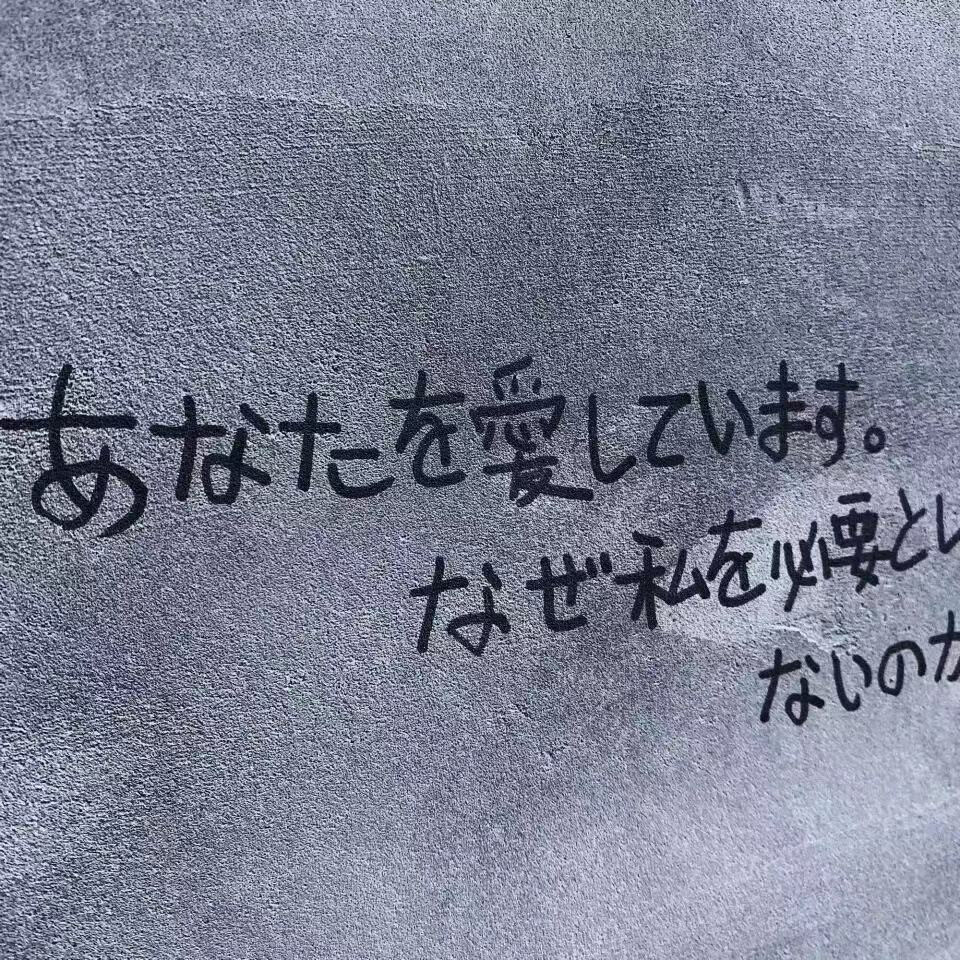 あなたを愛しています。
なぜ私を必要とし
ないのか